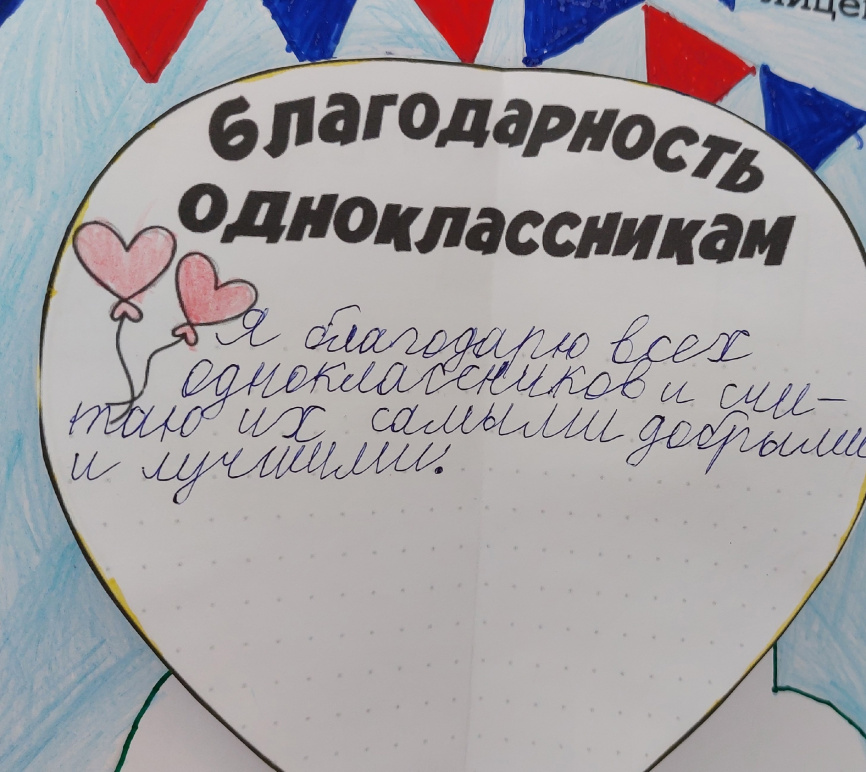 благодарность
одноклассникам
Я благодарю всех
одноклассников и счи-
таю их самыми добрыми
и лучшими.